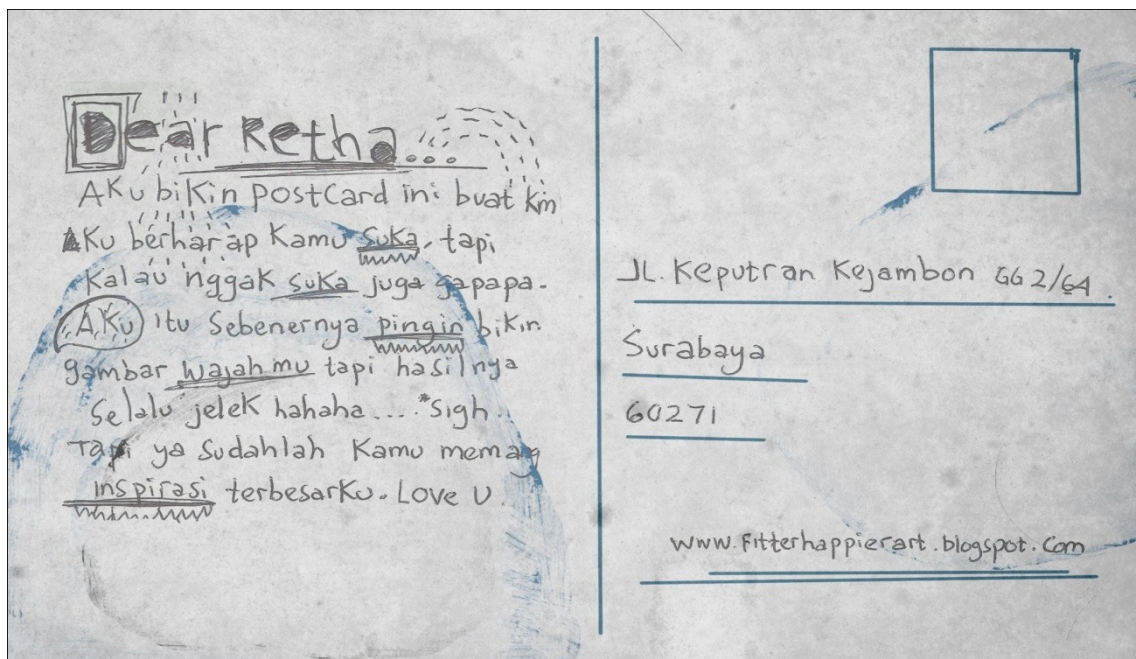 Dear Retha...
Aku bikin postcard ini buat km
Aku berharap kamu suka, tapi
kalau nggak suka juga gapapa.
Aku itu sebenernya pingin bikin
gambar wajah mu tapi hasilnya
selalu jelek hahaha.... *sigh..
Tapi ya sudahlah kamu memang
inspirasi terbesarku. Love U.
JL. Keputran Kejambon GG 2/64.
Surabaya
60271
www.fitterhappierart.blogspot.com